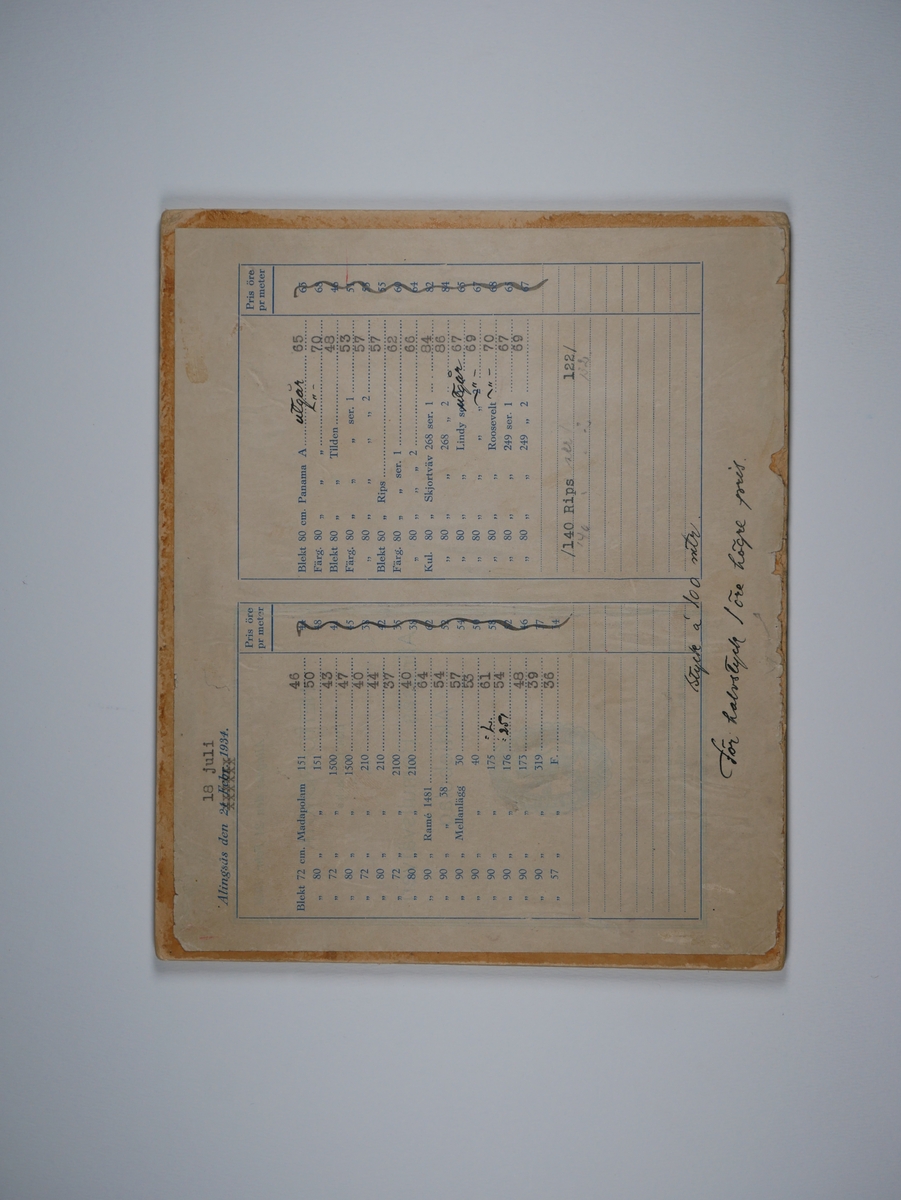 18 juli
Alingsås den 24 Febr. 1934.
xxxxxxx
Pris öre
pr meter
Blekt 72 cm. Madapolam 151 46
„ 80 „ „ 151 50
„ 72 „ „ 1500 43
„ 80 „ „ 1500 47
„ 72 „ „ 210 40
„ 80 „ „ 210 44
„ 72 „ „ 2100 37
„ 80 „ „ 2100 40
„ 90 „ Ramé 1481 64
„ 90 „ „ 38 54
„ 90 „ Mellanlägg 30 57
„ 90 „ „ 40 53
„ 90 „ „ 175 61
„ 90 „ „ 176 54
„ 90 „ „ 173 48
„ 90 „ „ 319 39
„ 57 „ „ F. 36
Pris öre
pr meter
Blekt 80 cm. Panama A utgår 65
Färg. 80 „ „ „ 70
Blekt 80 „ Tilden 48
Färg. 80 „ „ ser. 1 53
„ 80 „ „ „ 2 57
Blekt 80 „ Rips 57
Färg. 80 „ „ ser. 1 62
„ 80 „ „ „ 2 66
Kul. 80 „ Skjortväv 268 ser. 1 84
„ 80 „ „ 268 „ 2 86
„ 80 „ „ Lindy utgår 67
„ 80 „ „ „ „ 69
„ 80 „ „ Roosevelt „ 70
„ 80 „ „ 249 ser. 1 67
„ 80 „ „ 249 „ 2 69
/140 Rips 122/
Styck à 100 mtr.
För halvstyck 1 öre högre pris.